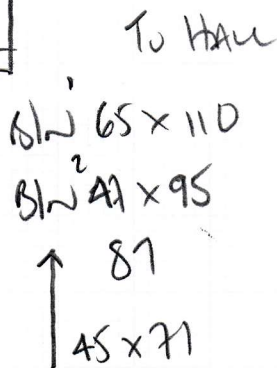 To HALL
BIN 1 65 x 110
BIN 2 47 x 95
87
45 x 71